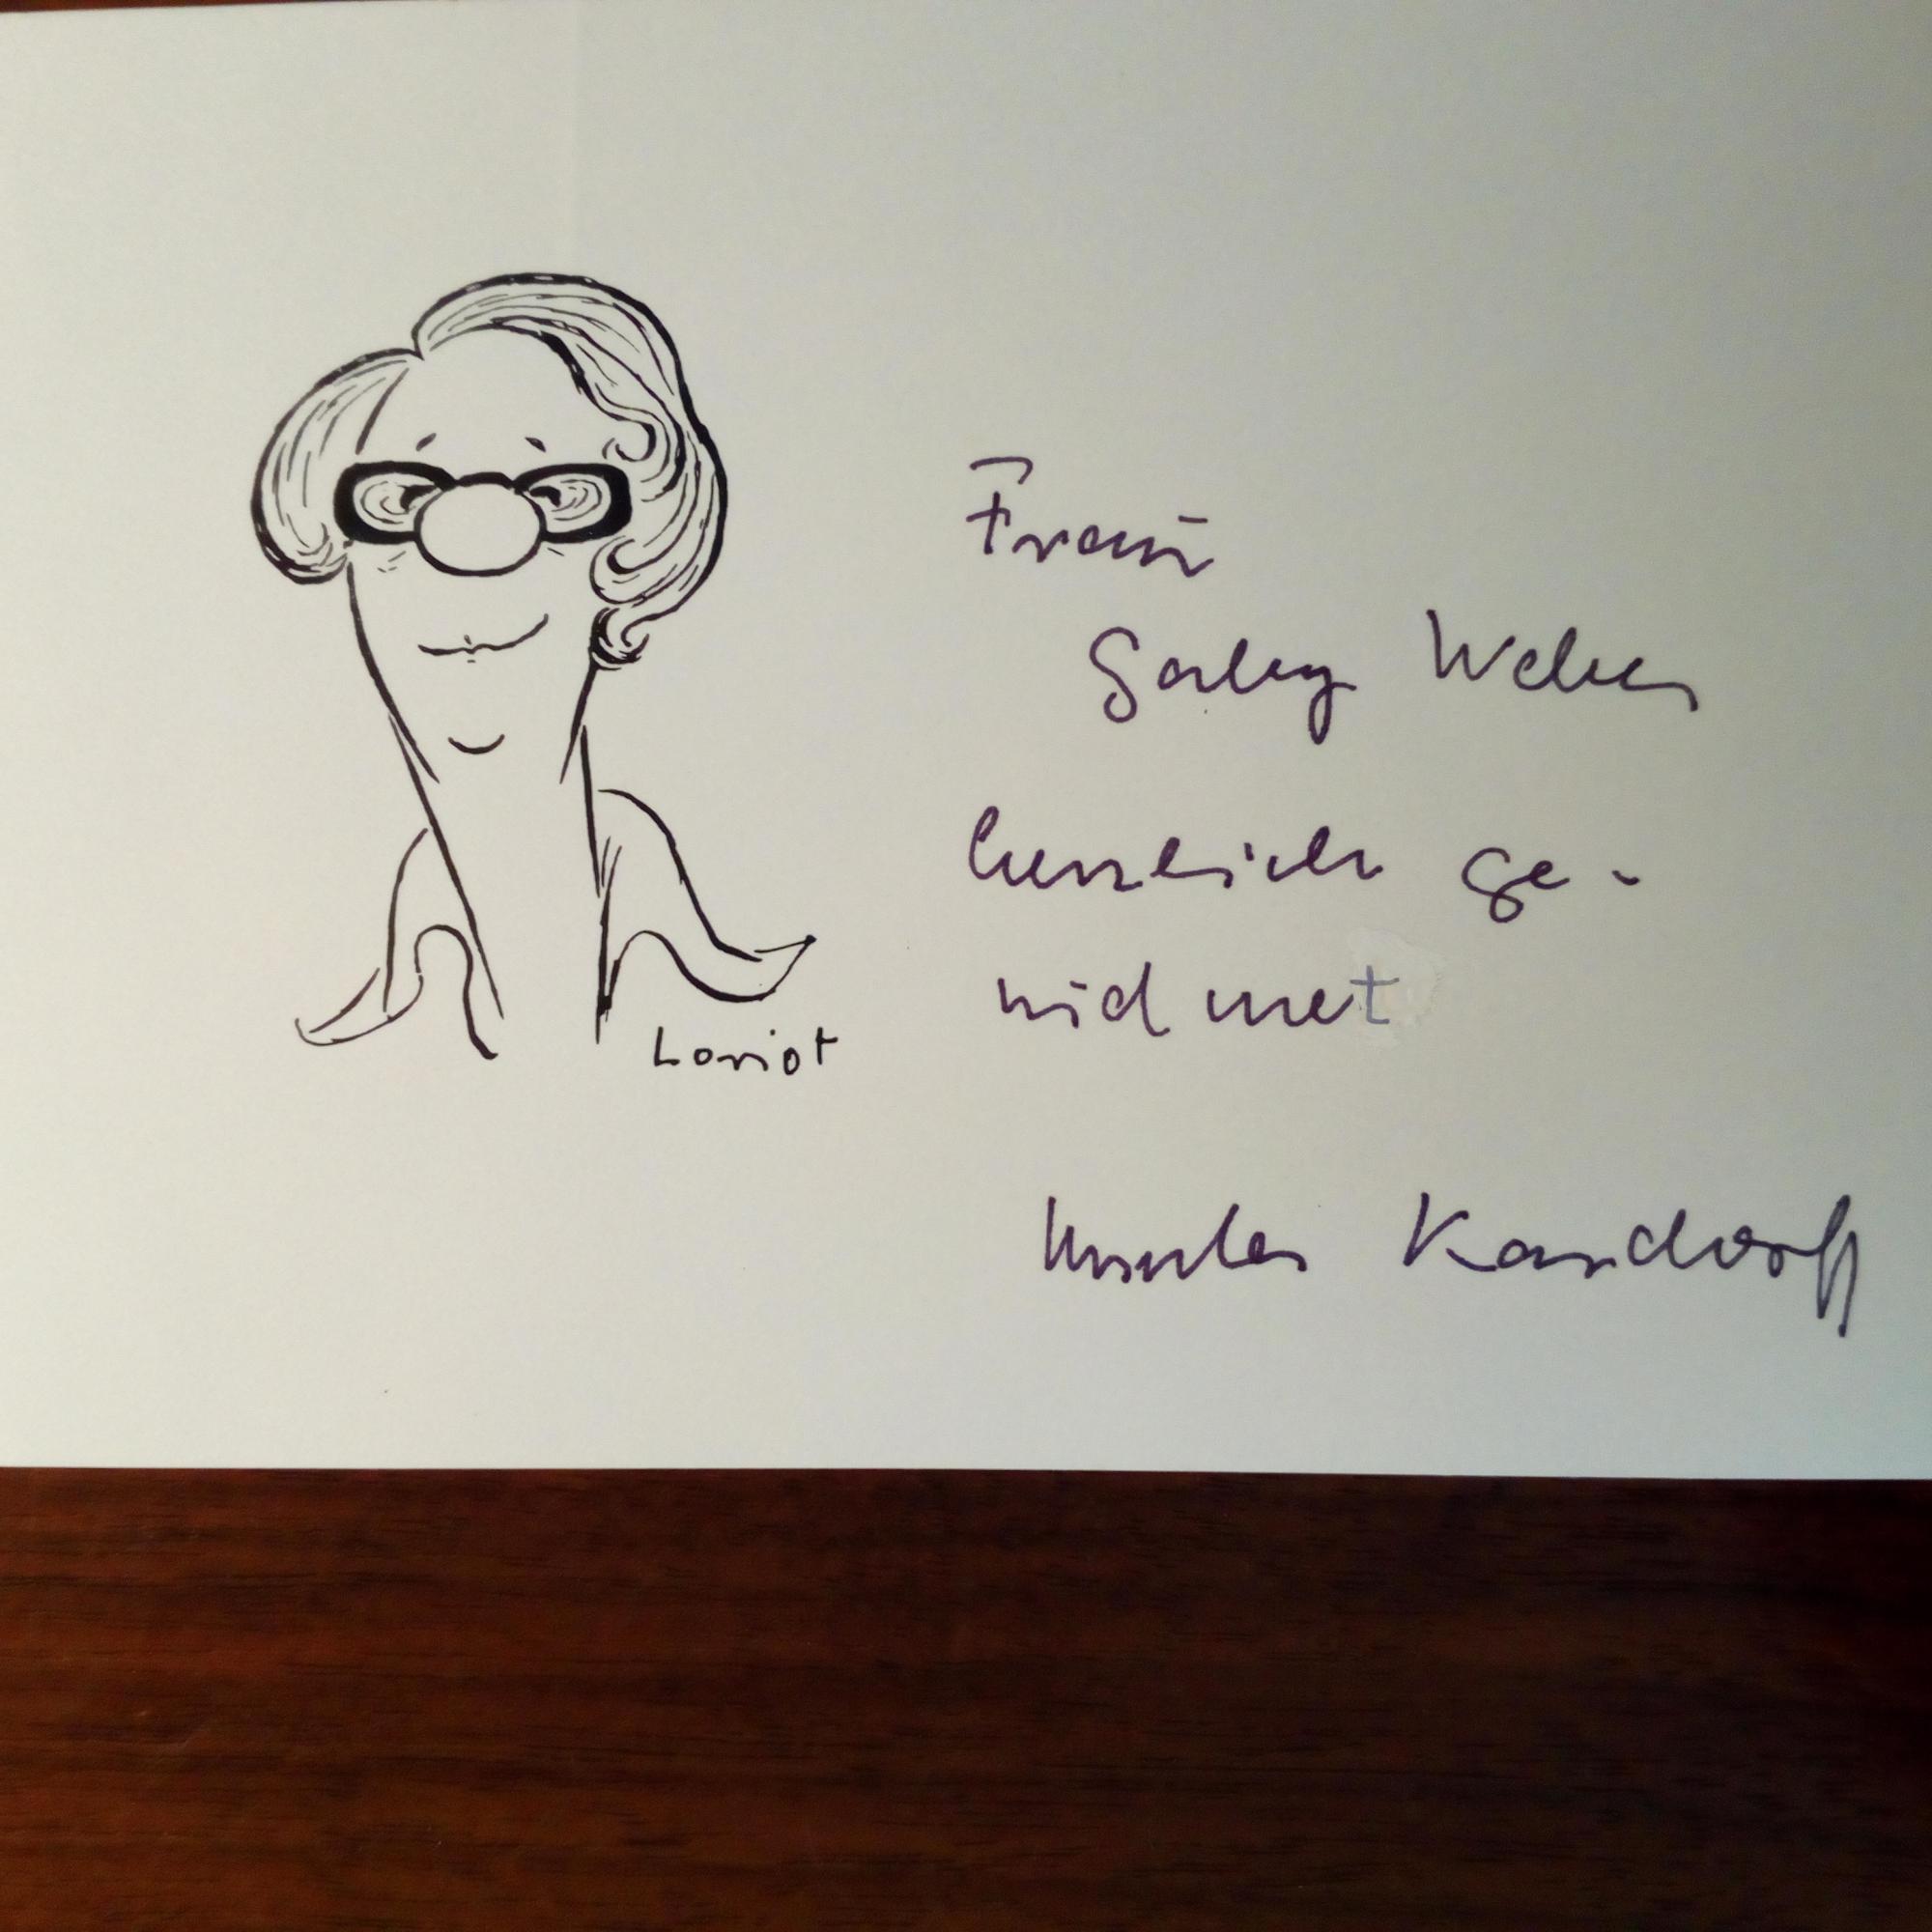 Loriot
Frau
Gaby Weber
herzlich ge-
widmet
Ursula Kardorff